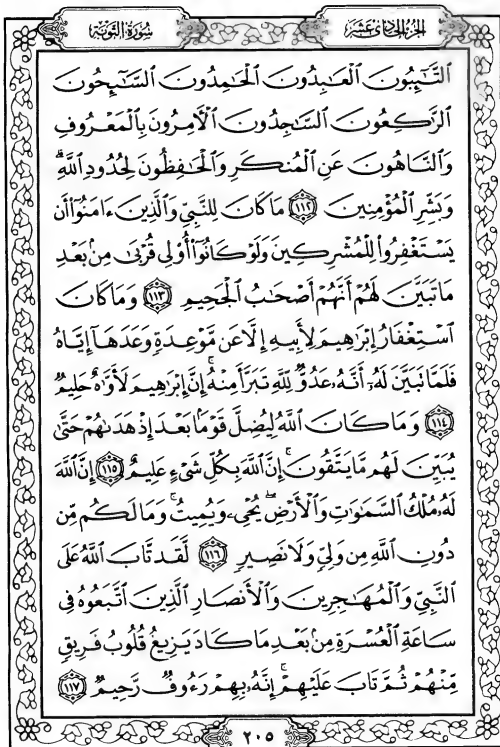 سُورَةُ التَّوْبَة
الجُزْءُ الحَادِي عَشَر
التَّٰٓئِبُونَ الْعَٰبِدُونَ الْحَٰمِدُونَ السَّٰٓئِحُونَ
الرَّٰكِعُونَ السَّٰجِدُونَ الْأٓمِرُونَ بِالْمَعْرُوفِ
وَالنَّاهُونَ عَنِ الْمُنكَرِ وَالْحَٰفِظُونَ لِحُدُودِ اللَّهِ ۗ
وَبَشِّرِ الْمُؤْمِنِينَ ١١٢ مَا كَانَ لِلنَّبِيِّ وَالَّذِينَ ءَامَنُوٓا۟ أَن
يَسْتَغْفِرُوا۟ لِلْمُشْرِكِينَ وَلَوْ كَانُوٓا۟ أُو۟لِى قُرْبَىٰ مِنۢ بَعْدِ
مَا تَبَيَّنَ لَهُمْ أَنَّهُمْ أَصْحَٰبُ الْجَحِيمِ ١١٣ وَمَا كَانَ
اسْتِغْفَارُ إِبْرَٰهِيمَ لِأَبِيهِ إِلَّا عَن مَّوْعِدَةٍ وَعَدَهَآ إِيَّاهُ
فَلَمَّا تَبَيَّنَ لَهُۥٓ أَنَّهُۥ عَدُوٌّ لِّلَّهِ تَبَرَّأَ مِنْهُ ۚ إِنَّ إِبْرَٰهِيمَ لَأَوَّٰهٌ حَلِيمٌ
١١٤ وَمَا كَانَ اللَّهُ لِيُضِلَّ قَوْمًۢا بَعْدَ إِذْ هَدَىٰهُمْ حَتَّىٰ
يُبَيِّنَ لَهُم مَّا يَتَّقُونَ ۚ إِنَّ اللَّهَ بِكُلِّ شَىْءٍ عَلِيمٌ ١١٥ إِنَّ اللَّهَ
لَهُۥ مُلْكُ السَّمَٰوَٰتِ وَالْأَرْضِ ۖ يُحْىِۦ وَيُمِيتُ ۚ وَمَا لَكُم مِّن
دُونِ اللَّهِ مِن وَلِىٍّ وَلَا نَصِيرٍ ١١٦ لَّقَد تَّابَ اللَّهُ عَلَى
النَّبِىِّ وَالْمُهَٰجِرِينَ وَالْأَنصَارِ الَّذِينَ اتَّبَعُوهُ فِى
سَاعَةِ الْعُسْرَةِ مِنۢ بَعْدِ مَا كَادَ يَزِيغُ قُلُوبُ فَرِيقٍ
مِّنْهُمْ ثُمَّ تَابَ عَلَيْهِمْ ۚ إِنَّهُۥ بِهِمْ رَءُوفٌ رَّحِيمٌ ١١٧
٢٠٥